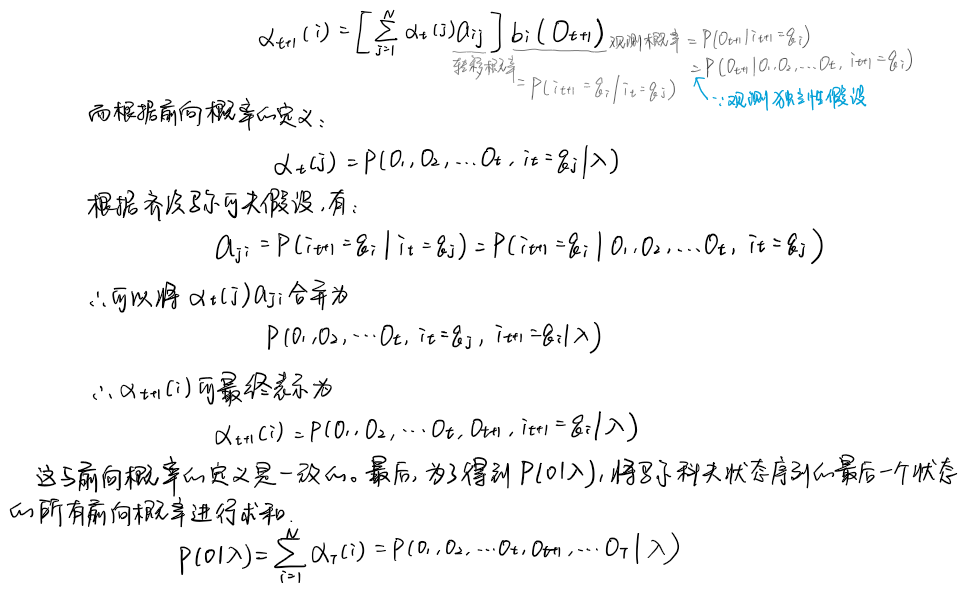 α_{t+1}(i) = [ \sum_{j=1}^{N} α_t(j) a_{ij} ] b_i(O_{t+1}) 观测概率 = P(O_{t+1} | i_{t+1} = q_i)
转移概率 = P(i_{t+1} = q_i | i_t = q_j) = P(O_{t+1} | O_1, O_2, ... O_t, i_{t+1} = q_i)
∵观测独立性假设
而根据前向概率的定义:
α_t(j) = P(O_1, O_2, ... O_t, i_t = q_j | λ)
根据齐次马尔可夫假设,有:
a_{ji} = P(i_{t+1} = q_i | i_t = q_j) = P(i_{t+1} = q_i | O_1, O_2, ... O_t, i_t = q_j)
∴可以将 α_t(j) a_{ji} 合并为
P(O_1, O_2, ... O_t, i_t = q_j, i_{t+1} = q_i | λ)
∴ α_{t+1}(i) 可最终表示为
α_{t+1}(i) = P(O_1, O_2, ... O_t, O_{t+1}, i_{t+1} = q_i | λ)
这与前向概率的定义是一致的。最后,为了得到 P(O|λ),将马尔科夫状态序列的最后一个状态
的所有前向概率进行求和.
P(O|λ) = \sum_{i=1}^{N} α_T(i) = P(O_1, O_2, ... O_t, O_{t+1}, ... O_T | λ)